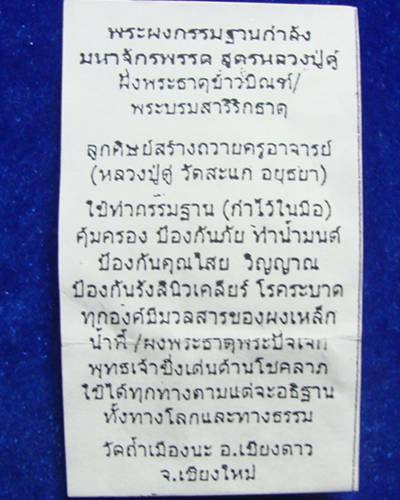 พระผงกรรมฐานกำลัง
มหาจักรพรรดิ สูตรหลวงปู่ดู่
ฝังพระธาตุข้าวบิณฑ์/
พระบรมสารีริกธาตุ
ลูกศิษย์สร้างถวายครูอาจารย์
(หลวงปู่ดู่ วัดสะแก อยุธยา)
ใช้ทำกรรมฐาน (กำไว้ในมือ)
คุ้มครอง ป้องกันภัย ทำน้ำมนต์
ป้องกันคุณไสย วิญญาณ
ป้องกันรังสีนิวเคลียร์ โรคระบาด
ทุกองค์มีมวลสารของผงเหล็ก
น้ำพี้ /ผงพระธาตุพระปัจเจก
พุทธเจ้าซึ่งเด่นด้านโชคลาภ
ใช้ได้ทุกทางตามแต่จะอธิฐาน
ทั้งทางโลกและทางธรรม
วัดถ้ำเมืองนะ อ.เชียงดาว
จ.เชียงใหม่